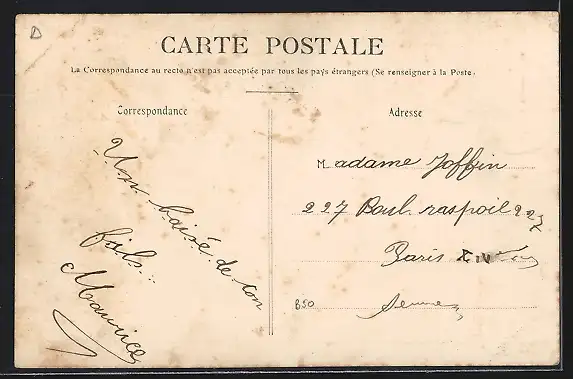 D
CARTE POSTALE
La Correspondance au recto n'est pas acceptée par tous les pays étrangers (Se renseigner à la Poste.
Correspondance
Adresse
Un baisé de ton
fils..
Maurice
Madame Joffrin
227 Boul. raspoil 227
Paris XIV
B50